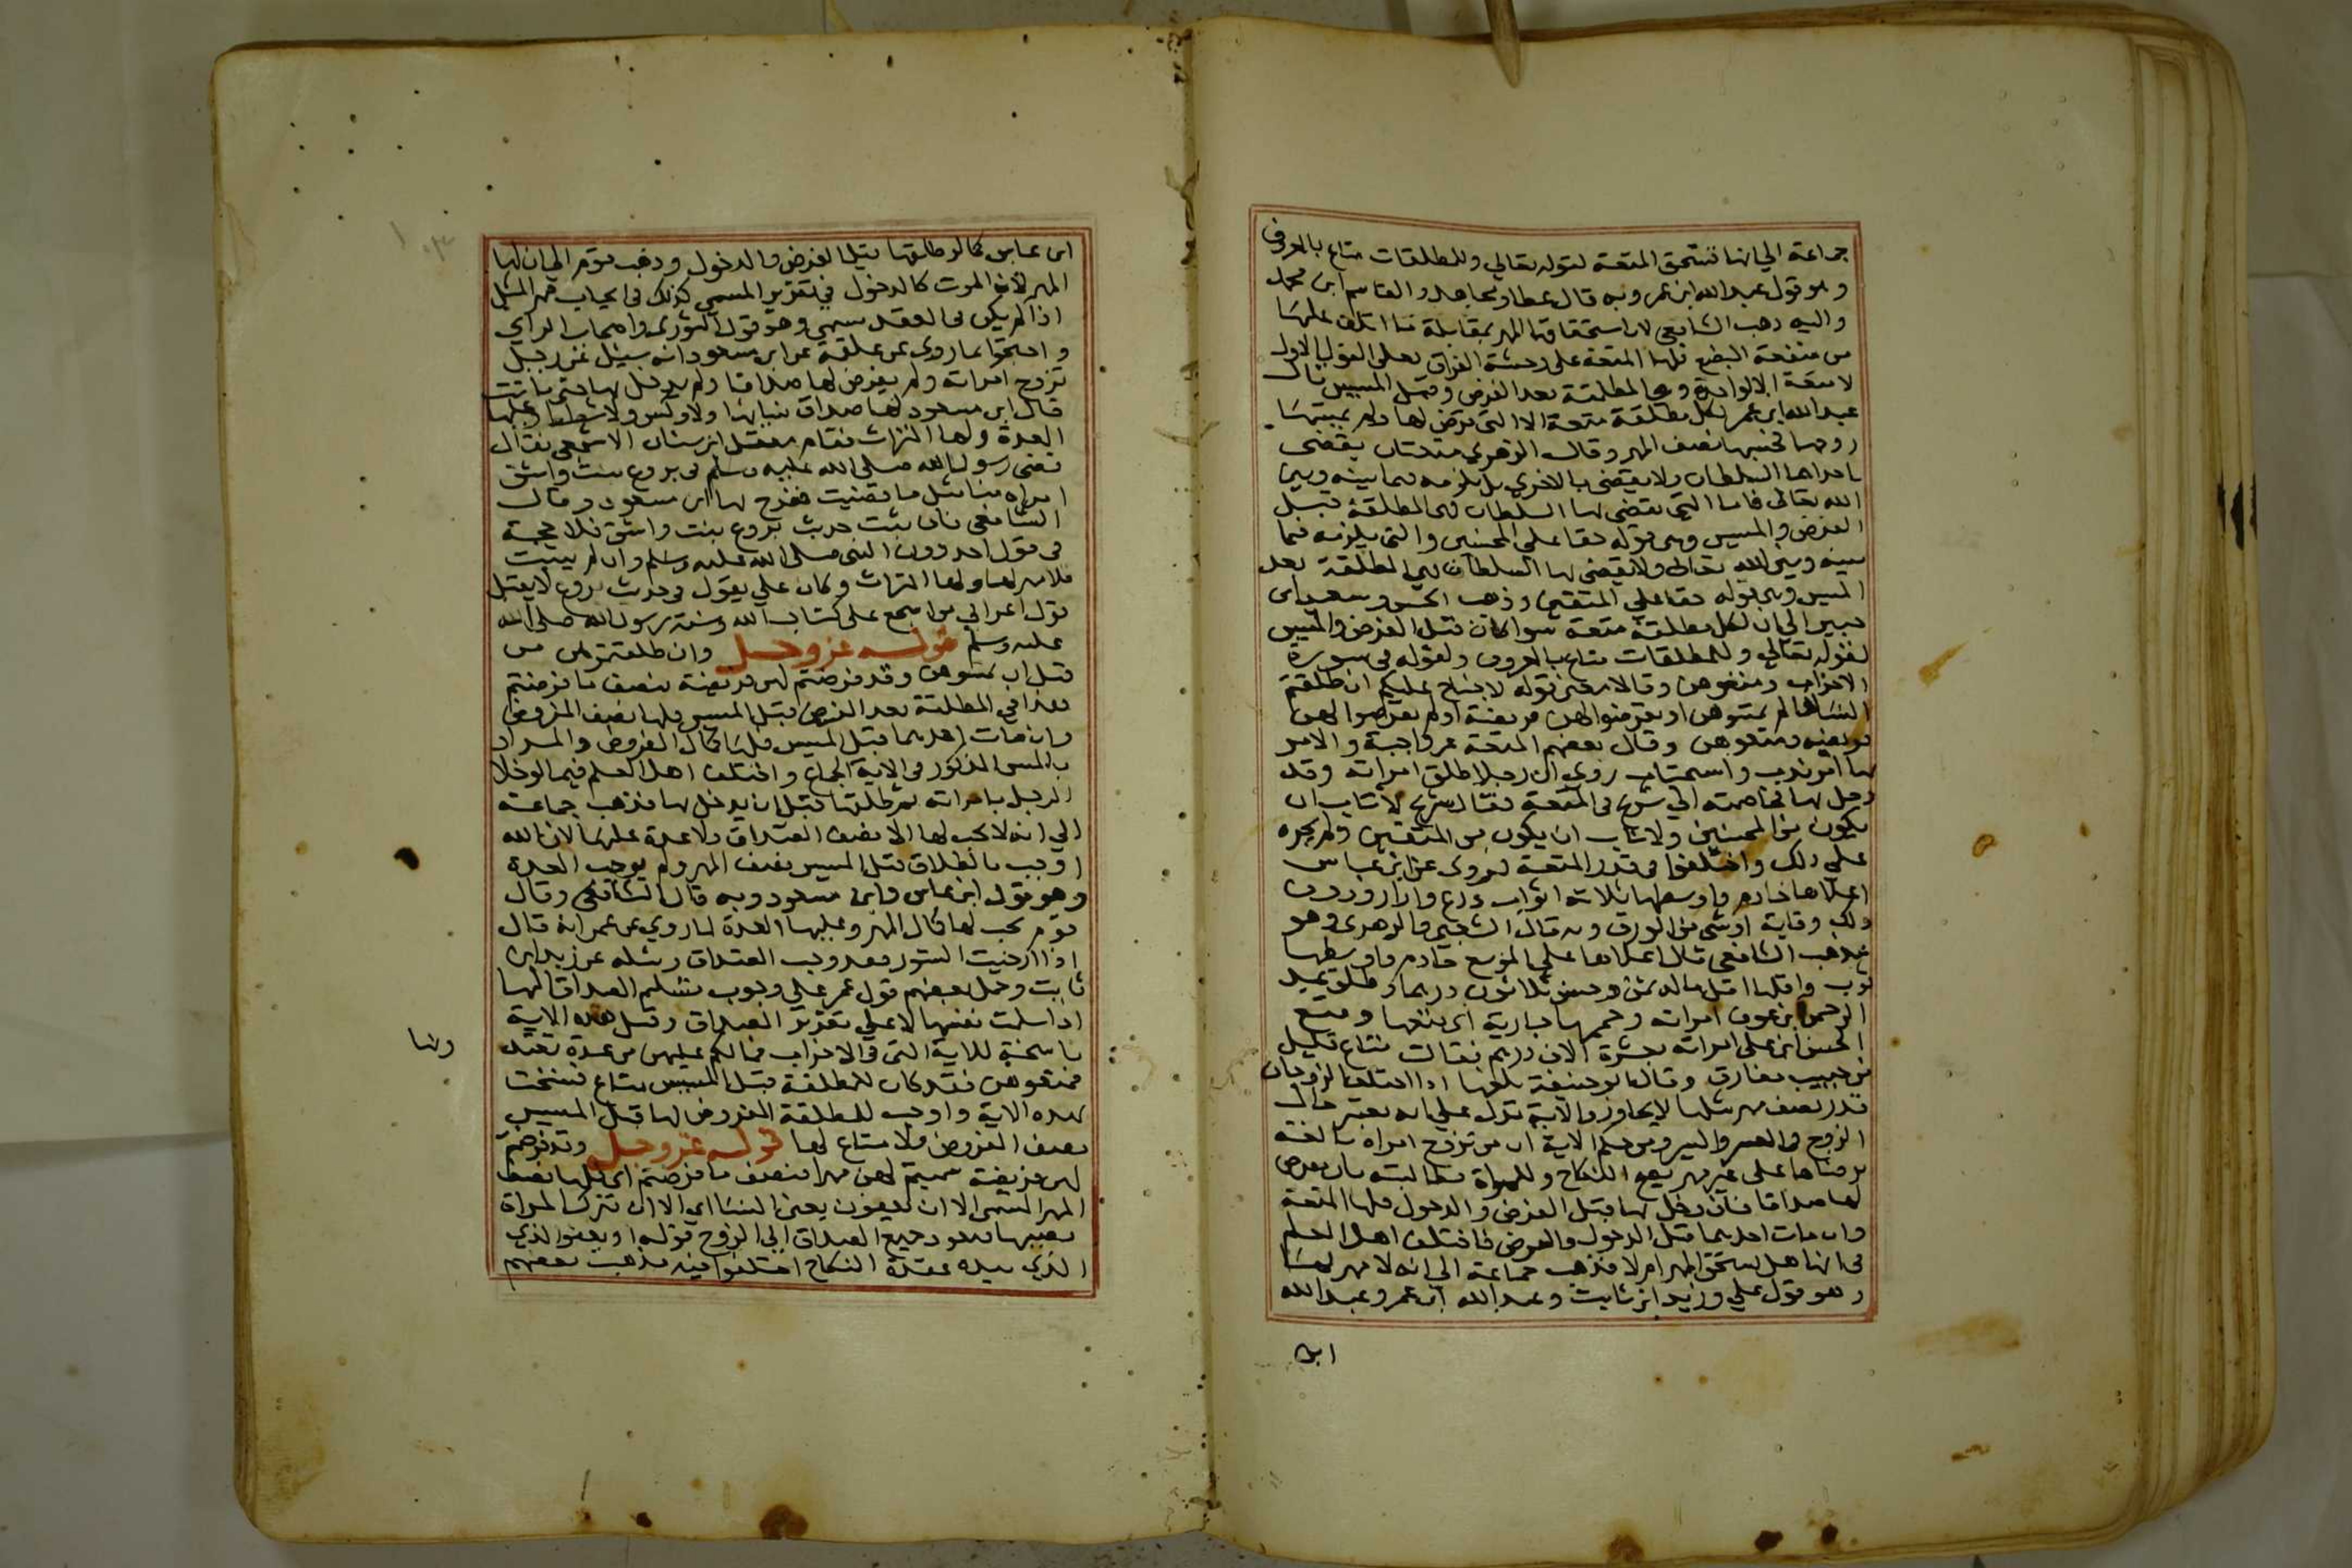 جماعة الي انها تستحق المتعة لقوله تعالي وللمطلقات متاع بالمعروف
وهو قول عبد الله ابن عمر وبه قال عطا ومجاهد والقاسم ابن محمد
واليه ذهب الشافعي لان استحقاقها المهر بمقابلة ما اتلف عليها
من منفعة البضع فلها المتعة علي وحشة الفراق فعلي القول الاول
لا متعة الا لواحدة وهي المطلقة بعد الفرض وقبل المسيس قال
عبد الله ابن عمر لكل مطلقة متعة الا التي فرض لها ولم يمسها
زوجها فحسبها نصف المهر وقال الزهري متعتان يقضي
باحداهما السلطان ولا يقضي بالاخري بل يلزمه فيما بينه وبين
الله تعالى فاما التي يقضي بها السلطان فهي المطلقة قبل
الفرض والمسيس وهي قوله حقا علي المحسنين والتي يلزمه فيما
بينه وبين الله تعالى ولا يقضي بها السلطان فهي المطلقة بعد
المسيس وهي قوله حقا علي المتقين وذهب الحسن وسعيد ابن
جبير الي ان لكل مطلقة متعة سوا كان قبل الفرض والمسيس
لقوله تعالي وللمطلقات متاع بالمعروف ولقوله في سورة
الاحزاب ومتعوهن وقالا معنى قوله لا جناح عليكم ان طلقتم
النسا ما لم تمسوهن او تفرضوا لهن فريضة او لم تفرضوا لهن
فريضة ومتعوهن وقال بعضهم المتعة غير واجبة والامر
بها امر ندب واستحباب روي ان رجلا طلق امراته وقد
دخل بها فخاصمته الي شريح في المتعة فقال شريح لا تاب ان
يكون من المحسنين ولا تاب ان يكون من المتقين ولم يجبره
علي ذلك واختلفوا في قدر المتعة فروي عن ابن عباس
اعلاها خادم واوسطها ثلاثة اثواب درع وازار ودون
ذلك وقاية او شي من الورق وبه قال الشعبي والزهري وهو
مذهب الشافعي قال اعلاها علي الموسع خادم واوسطها
ثوب واقلها اقل ماله ثمن وحسن ثلاثون درهما وطلق عبد
الرحمن ابن عوف امراته وحممها جارية اي متعها ومتع
الحسن ابن علي امراته بعشرة الاف درهم فقالت متاع قليل
من حبيب مفارق وقال ابو حنيفة مبلغها اذا اختلف الزوجان
قدر نصف مهر مثلها لا يجاوز والاية تدل علي انه يعتبر حال
الزوج في العسر واليسر ومن حكم الاية ان من تزوج امراة بالغة
برضاها علي غير مهر يصح النكاح وللمراة مطالبته بان يفرض
لها صداقا فان دخل بها قبل الفرض والدخول فلها المتعة
وان مات احدهما قبل الدخول والفرض فاختلف اهل العلم
في انها هل يستحق المهر ام لا فذهب جماعة الي انه لا مهر لها
وهو قول علي وزيد ابن ثابت وعبد الله ابن عمر وعبد الله
ابن
ابن عباس كما لو طلقها قبل الفرض والدخول وذهب قوم الي ان لها
المهر لان الموت كالدخول في تقرير المسمي كذلك في ايجاب مهر المثل
اذا لم يكن في العقد مسمي وهو قول الثوري واصحاب الراي
واحتجوا بما روي عن علقمة عن ابن مسعود انه سيئل عن رجل
تزوج امراته ولم يفرض لها صداقا ولم يدخل بها حتى ماتت
قال ابن مسعود لها صداق نسائها ولا وكس ولا شطط وعليها
العدة ولها الميراث فقام معقل ابن سنان الاشجعي فقال
قضى رسول الله صلى الله عليه وسلم في بروع بنت واشق
امراة منا مثل ما قضيت ففرح بها ابن مسعود وقال
الشافعي فان ثبت حديث بروع بنت واشق فلا حجة
في قول احد دون النبي صلى الله عليه وسلم وان لم يثبت
فلا مهر لها ولها الميراث وكان علي يقول في حديث بروع لا يقبل
قول اعرابي من اشجع علي كتاب الله وسنة رسول الله صلى الله
عليه وسلم قوله عز وجل وان طلقتموهن من
قبل ان تمسوهن وقد فرضتم لهن فريضة فنصف ما فرضتم
هذا في المطلقة بعد الفرض قبل المسيس فلها نصف المفروض
وان مات احدهما قبل المسيس فلها كمال المفروض والمراد
بالمس المذكور في الاية الجماع واختلف اهل العلم فيما لو خلا
الرجل بامراته ثم طلقها قبل ان يدخل بها فذهب جماعة
الي انه لا يجب لها الا نصف الصداق ولا عدة عليها لان الله
اوجب بالطلاق قبل المسيس نصف المهر ولم يوجب العدة
وهو قول ابن عباس وابن مسعود وبه قال الشافعي وقال
قوم يجب لها كمال المهر وعليها العدة لما روي عن عمر انه قال
اذا ارخيت الستور فقد وجب الصداق ومثله عن زيد ابن
ثابت وحمل بعضهم قول عمر علي وجوب تسليم الصداق اليها
اذا سلمت نفسها لا علي تقرير الصداق وقيل هذه الاية
ناسخة للاية التي في الاحزاب فما لكم عليهن من عدة تعتد
فمتعوهن فقد كان للمطلقة قبل المسيس متاع فنسخت
بهذه الاية واوجب للمطلقة المفروض لها قبل المسيس
نصف المفروض ولا متاع لها قوله عز وجل وقد فرضتم
لهن فريضة سميتم لهن مهرا فنصف ما فرضتم اي فلها نصف
المهر المسمى الا ان يعفون يعنى النسا اي الا ان تترك المراة
نصيبها فيعود جميع الصداق الي الزوج قوله او يعفو الذي
الذي بيده عقدة النكاح اختلفوا فيه فذهب بعضهم